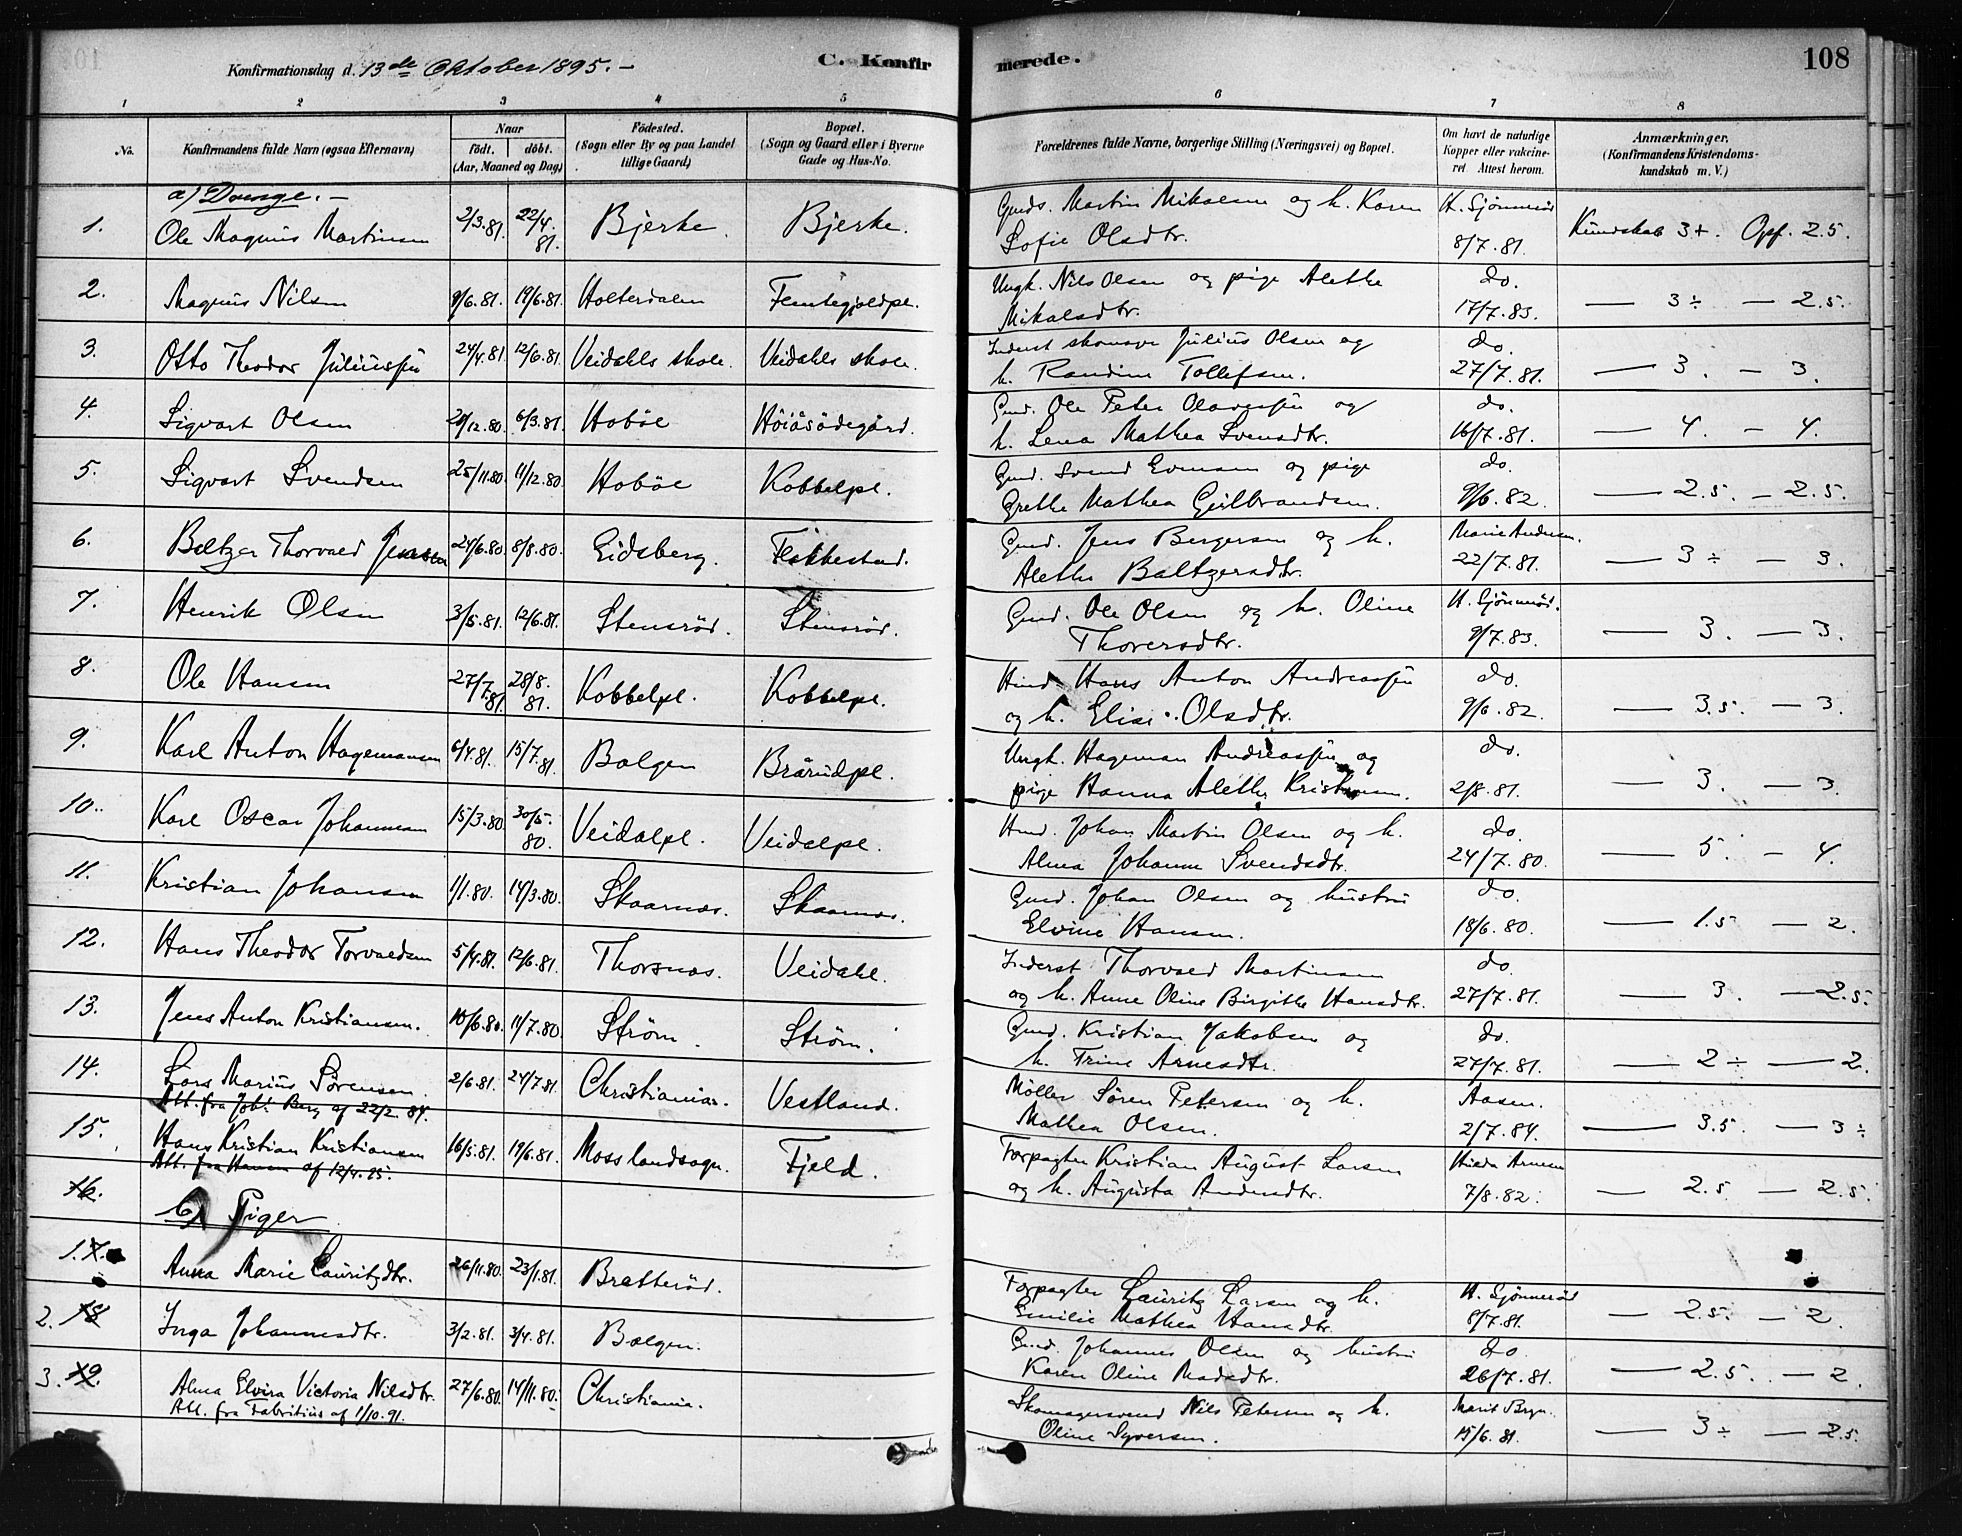 Konfirmationsdag d. 13de Oktober 1895. –
C. Konfirmerede.
108
1 2 3 4 5 6 7 8
No.
Konfirmandens fulde Navn (ogsaa Efternavn)
Naar
født. døbt.
(Aar, Maaned og Dag)
Fødested.
(Sogn eller By og paa Landet
tillige Gaard)
Bopæl.
(Sogn og Gaard eller i Byerne
Gade og Hus-No.
Forældrenes fulde Navne, borgerlige Stilling (Næringsvei) og Bopæl.
Om havt de naturlige
Kopper eller vakcine-
ret Attest herom.
Anmærkninger,
(Konfirmandens Kristendoms-
kundskab m. V.)
a) Drenge. –
1. Ole Magnus Martinsen 2/3.81. 22/4.81. Bjerke. Bjerke. Gmds. Martin Mikalsen og h. Karen
Sofie Olsdtr. 8/7.81. Kundskab 3+. Opf. 2.5.
2. Magnus Nilsen 9/6.81. 19/6.81. Holterdalen Ungk. Nils Olsen og pige Alethe
Mikalsdtr. do. 17/7.83. — 3÷ — 2.5.
3. Otto Theodor Juliussen 24/4.81. 12/6.81. Veidahls skole. Veidahls skole. Inderst skomager Julius Olsen og
h. Randine Tollefsen. do. 27/7.81. — 3. – 3.
4. Sigvart Olsen 6/3.81. Hobøl Høiåsødegård. Gmd. Ole Peter Olavessen og
h. Lena Mathea Svensdtr. do. 16/7.81. — 4. – 4.
5. Sigvart Svendsen 25/11.80. 11/12.80. Hobøl Kobbelpl. Gmd. Svend Evensen og pige
Grethe Mathea Gulbrandsen. do. 9/6.82. — 2.5. – 2.5.
6. Baltzer Thorvald Jensen 24/6.80. 8/8.80. Eidsberg. Flakkestad. Gmd. Jens Bergersen og h.
Alethe Baltzersdtr. Marie Andersen. 22/7.81. — 3÷ — 3.
7. Henrik Olsen 3/5.81. 12/6.81. Stensrød. Stensrød. Gmd. Ole Olsen og h. Oline
Thoresdtr. 9/7.83. — 3. — 3.
8. Ole Hansen 27/7.81. 28/8.81. Kobbelpl. Kobbelpl. Hans Anton Andreassen
og h. Elise Olsdtr. do. 9/6.82. — 3.5. – 3.
9. Karl Anton Hagemansen 6/4.81. 15/7.81. Bolgen Brårudpl. Ungk. Hageman Andreassen og
pige Hanna Alethe Kristiansen. do. 2/8.81. — 3. – 3.
10. Karl Oscar Johannesen 15/3.80. 30/5.80. Veidalpl. Veidalpl. Johan Martin Olsen og h.
Alma Johanne Svendsdtr. do. 24/7.80. — 5. – 4.
11. Kristian Johansen 1/1.80. 14/3.80. Skaarnæs. Skaarnæs. Gmd. Johan Olsen og hustru
Elvine Hansen. do. 18/6.80. — 1.5 – 2.
12. Hans Theodor Torvaldsen 5/4.81. 12/6.81. Thorsnæs. Veidahl. Inderst Thorvald Martinsen
og h. Anne Oline Birgitte Hansdtr. do. 27/7.81. — 3. — 2.5.
13. Jens Anton Kristiansen. 10/6.80. 11/7.80. Strøm. Strøm. Gmd. Kristian Jakobsen og
h. Trine Arnesdtr. do. 27/7.81. — 2÷ — 2.
14. Lars Marius Sørensen. 2/6.81. 24/7.81. Christiania. Vestland. Møller Søren Petersen og h.
Att. fra Joh. Berg af 22/2.84.
Mathea Olsen. Aasen. 2/7.84. — 3.5. — 3÷
15. Hans Kristian Kristiansen 16/5.81. 19/6.81. Moss landsogn. Fjeld. Forpagter Kristian August Larsen
Att. fra Hansen af 12/4.95.
og h. Augusta Andersdtr. 7/8.82. — 2.5 — 2.5.
16.
b) Piger
1. 17. Anna Marie Lauritzdtr. 26/11.80. 23/1.81. Bratterød. Forpagter Lauritz Larsen og h.
Emilie Mathea Hansdtr. 8/7.81. — 2.5. — 2.
2. 18 Inga Johannesdtr. 3/2.81. 3/4.81. Bolgen. Gmd. Johannes Olsen og hustru
Karen Oline Madsdtr. do. 26/7.81. — 2.5. — 2.
3. 19. Alma Elvira Victoria Nilsdtr. 27/6.80. 14/11.80. Christiania. Skomagersvend Nils Petersen og h.
Att. fra Fabritius af 1/10.91.
Oline Syversen. 15/6.81. — 3÷ — 2.5.